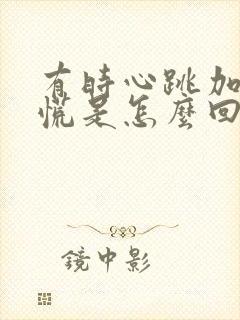 有時心跳加
慌是怎麼回
鏡中影